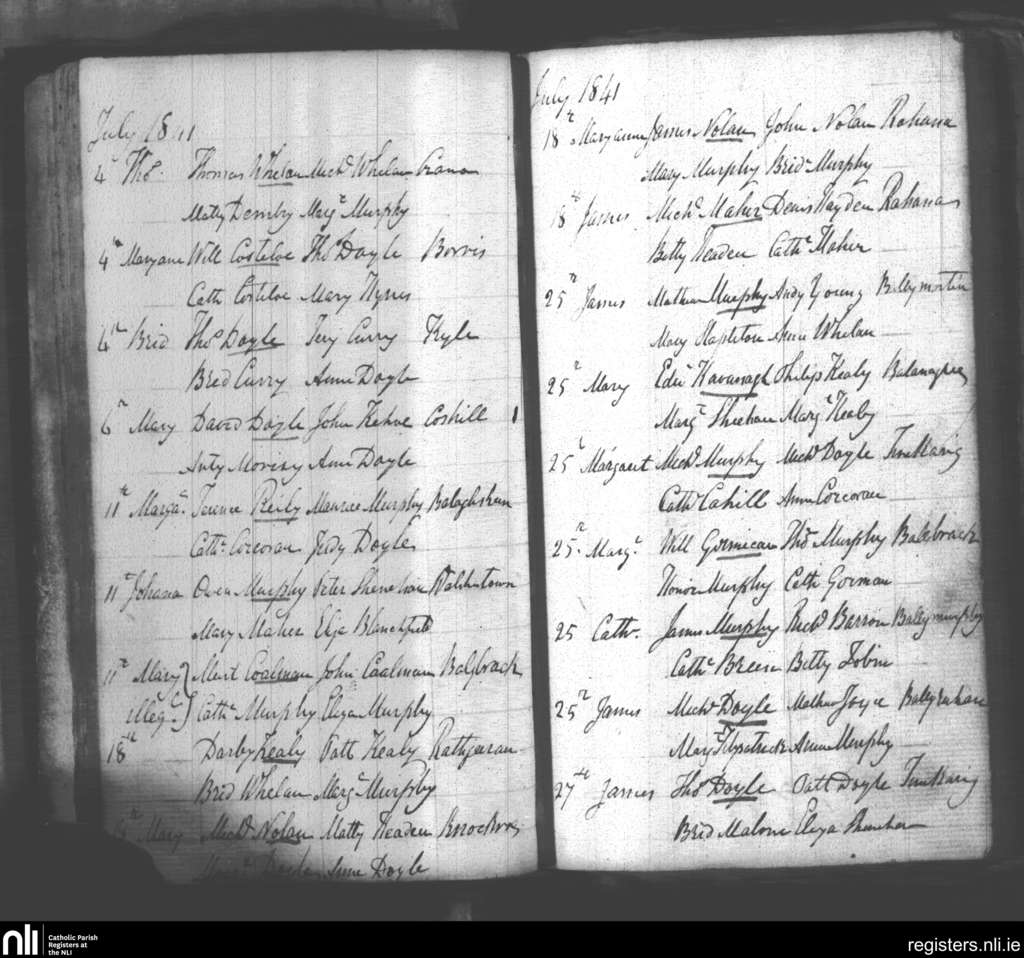 July 1841
4th Thos. Thomas Whelan Michl Whelan
Matty Margt Murphy
4th Maryane Will Costeloe Thos Doyle Borris
Cath Costeloe Mary Hynes
6th Brid Thos Doyle Curry Kyle
Bred Curry Anne Doyle
6th Mary David Doyle John Kehoe Coshill
Anty Ann Doyle
11th Margt. Terence Reily Maurice Murphy
Cathe Corcoran Judy Doyle
11th Johana Owen Murphy Peter
Mary Maher Eliza Blanchfield
11th Mary Murt Coalman John Coalman Balybrack
Illegt. Cathe Murphy Eliza Murphy
18th Darby Healy Patt Healy
Bred Whelan Margt Murphy
Mary Michl Nolan Matty Headen
Doyle Anne Doyle
July 1841
18th Maryanne James Nolan John Nolan Rahana
Mary Murphy Bridt Murphy
18th James Michl Maher Denis Hayden Rahana
Betty Headen Cathe Maher
25th James Mathew Murphy Andy Young
Mary Hapleton Anne Whelan
25th Mary Edwd Kavanagh Philip Healy
Margt Sheehan Margt Healy
25th Margaret Michl Murphy Michl Doyle
Cathe Cahill Anne Corcoran
25th. Margt. Will Gormican Thos Murphy Balybrack
Honor Murphy Cath Gorman
25 Cathe. James Murphy Richd Barron Ballymurphy
Cathe Breen Betty Tobin
25th James Michl Doyle Mathew Joyce
Margt Fitzpatrick Anne Murphy
27th James Thos Doyle Patt Doyle
Brid Malone Eliza
nli
Catholic Parish
Registers at
the NLI
registers.nli.ie